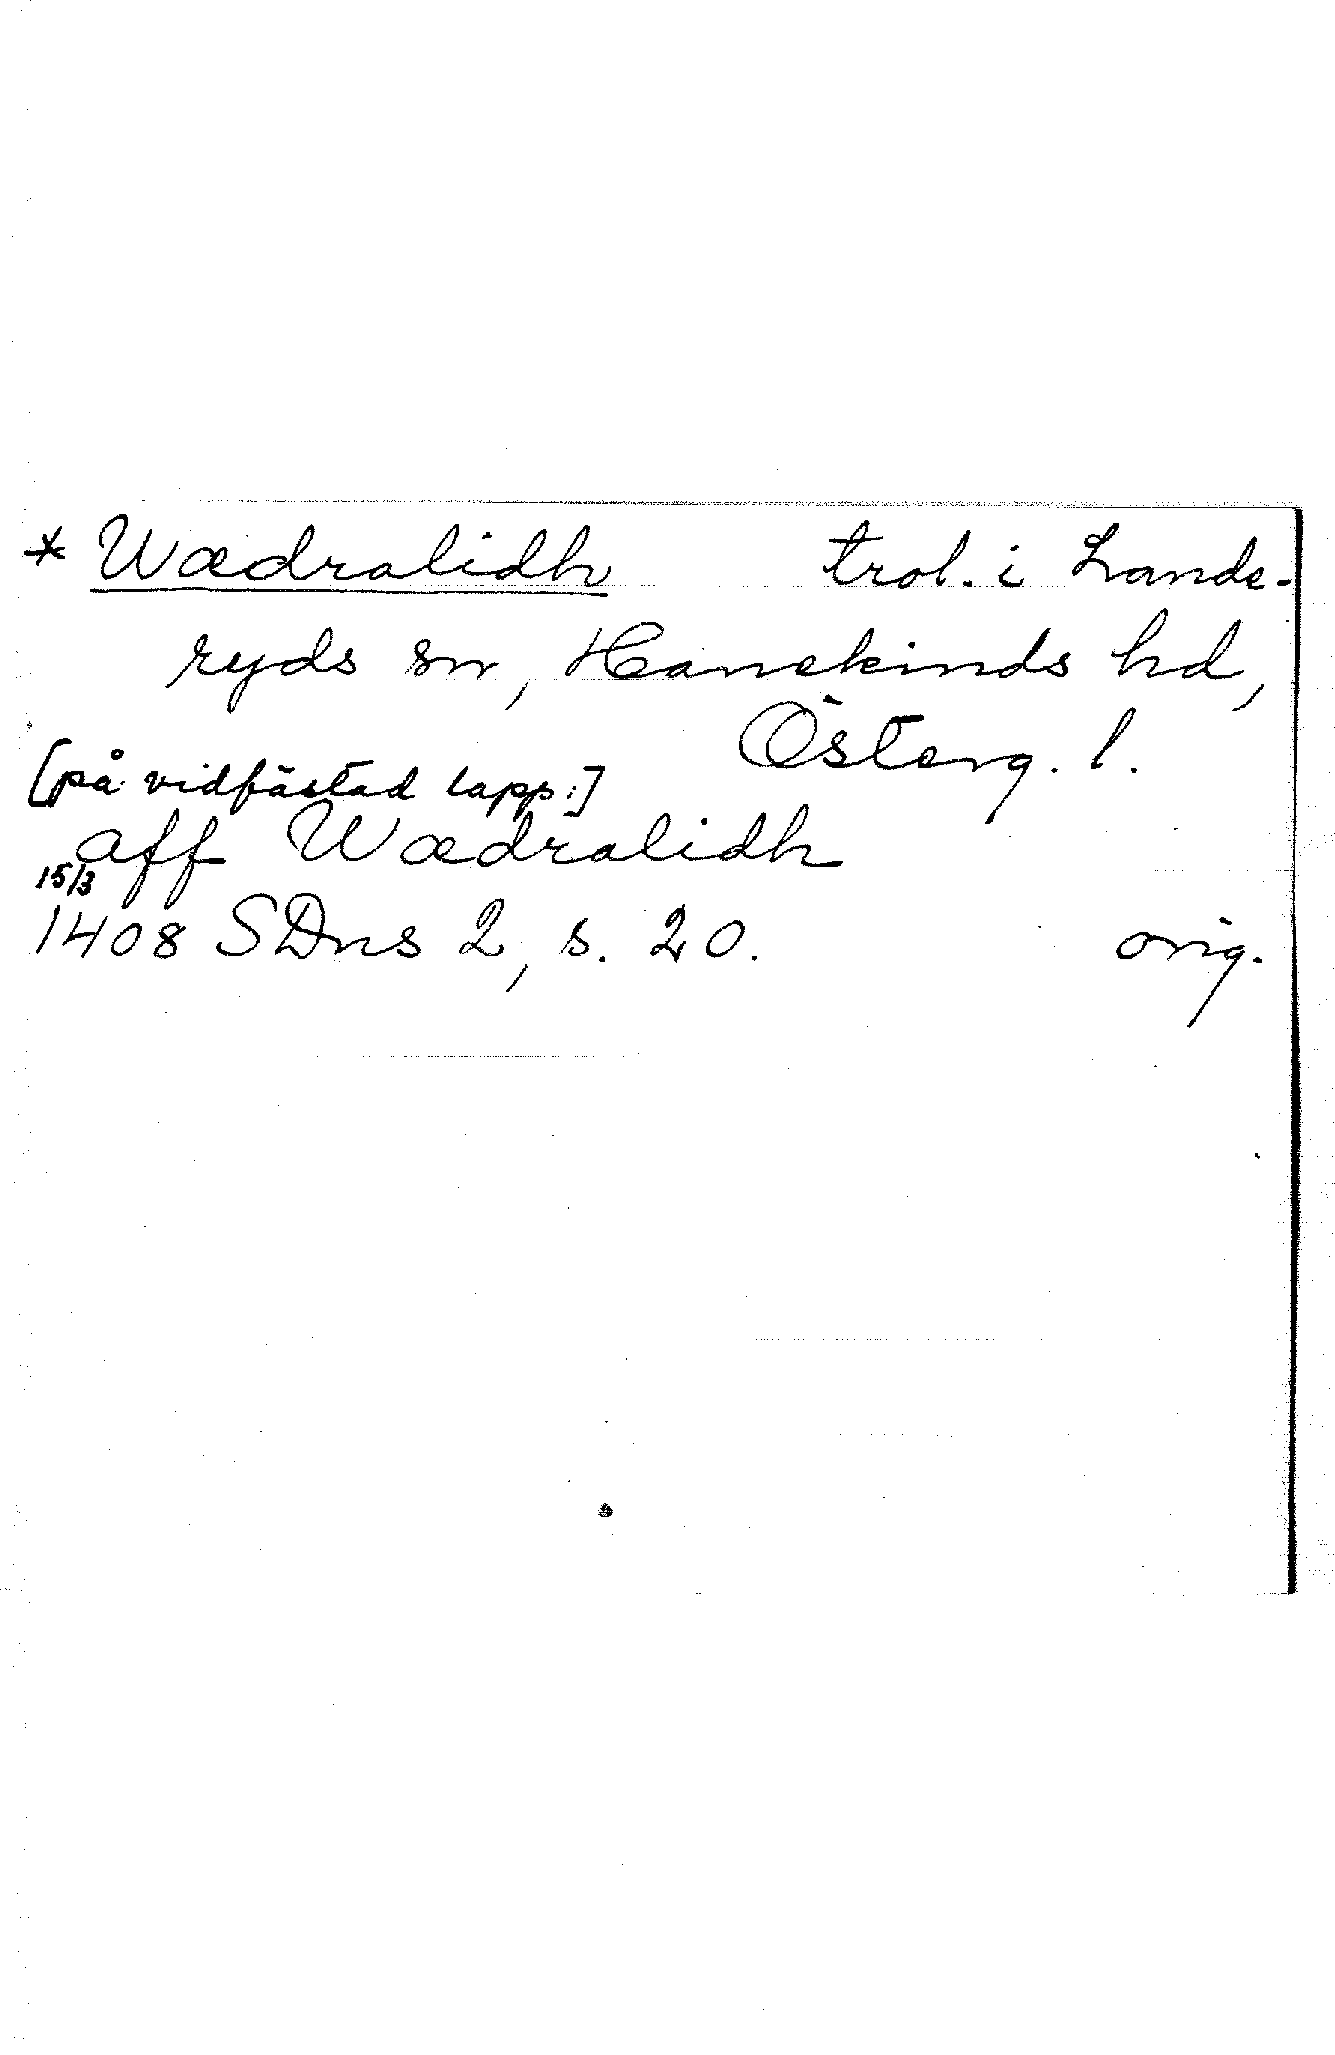 * Wædralidh trol. i Lande-
ryds sn, Hanekinds hd,
Österg. l.
[på vidfästad lapp:]
aff Wædralidh
15/3
1408 SDns 2, s. 20. orig.